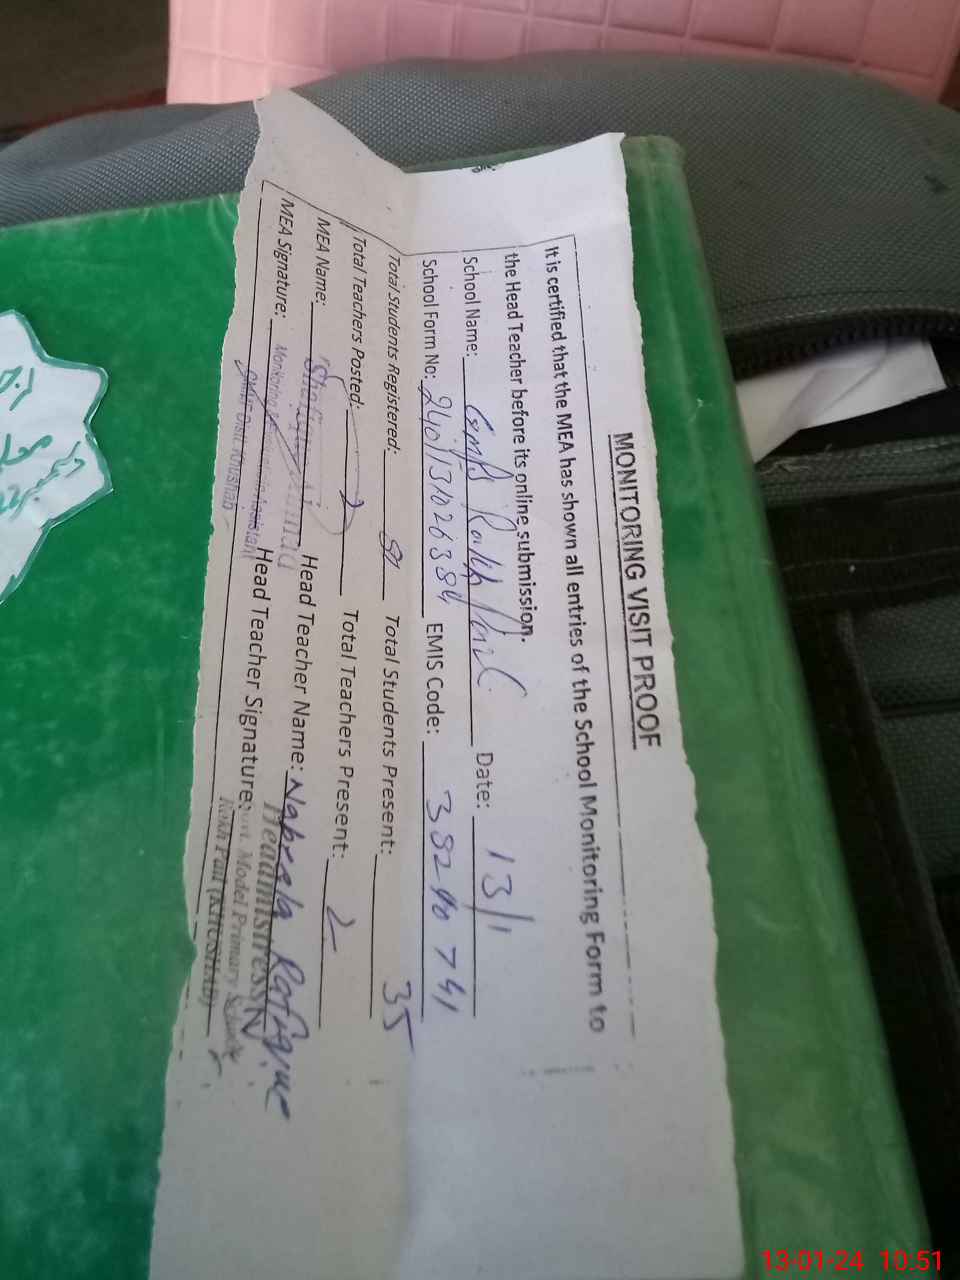 MONITORING VISIT PROOF
It is certified that the MEA has shown all entries of the School Monitoring Form to
the Head Teacher before its online submission.
School Name: Gmps Rakh Date: 13/1
School Form No: EMIS Code: 38240741
Total Students Registered: Total Students Present: 35
Total Teachers Posted: 2 Total Teachers Present: 2
MEA Name: Head Teacher Name: Nabeela Rafique
MEA Signature: Head Teacher Signature:
Monitoring
Khushab
Headmistress
Govt. Model Primary School
Rakh (Khushab)
13-01-24 10.51